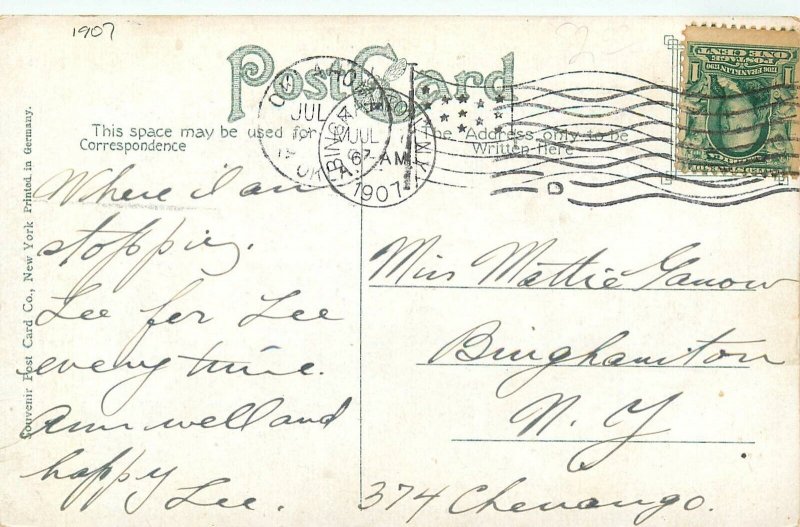 1907
Post Card
This space may be used for
Correspondence
The Address only to be
Written Here
Souvenir Post Card Co., New York Printed in Germany.
OKLAHOMA
JUL
4
JUL
7-AM
1907
N.Y.
D
1
1
POSTAGE
ONE CENT
Where I am
stopping.
Lee for Lee
every time.
Am well and
happy
Lee.
Miss Mattie Ganow
Binghamton
N. Y.
374 Chenango.